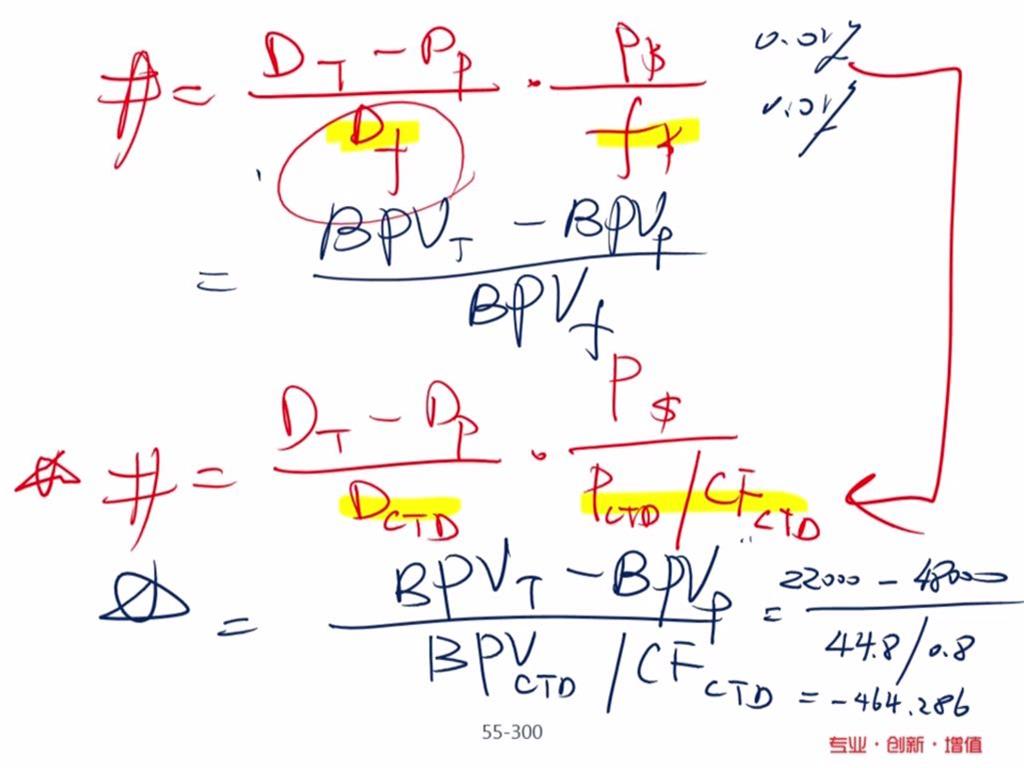 # = (D_T - P_P) / D_f · P_$ / f_$
0.01%
0.01%
= (BPV_T - BPV_P) / BPV_f
☆ # = (D_T - D_P) / D_CTD · P_$ / (P_CTD / CF_CTD)
☆ = (BPV_T - BPV_P) / (BPV_CTD / CF_CTD) = (22000 - 48000) / (44.8 / 0.8)
= -464.286
55-300
专业·创新·增值